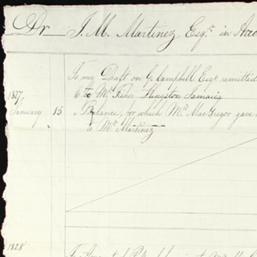 Dr J. M. Martinez Esqr. in Acc
To my Draft on G. Campbell Esqr. remitted
to Mr. Fisher Kingston Jamaica
1827
January 15 Balance, for which Mr. MacGregor gave
to Mr. Martinez
1828